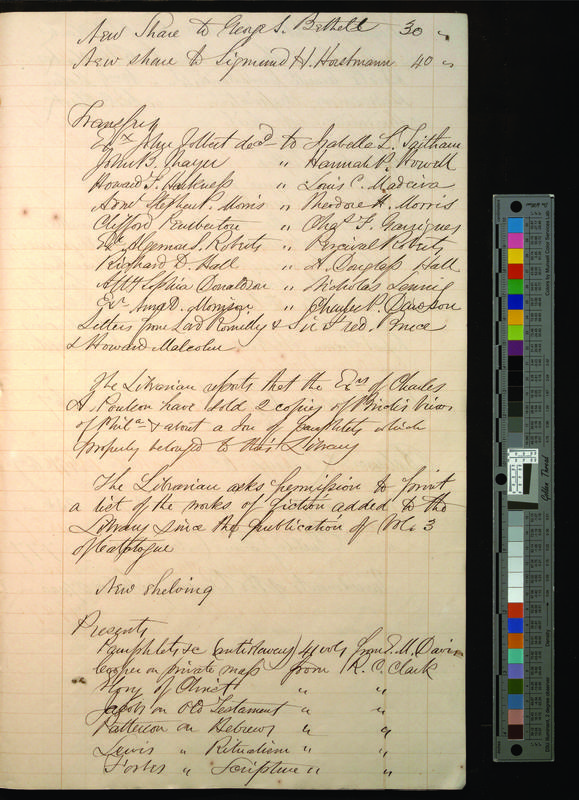 New Share to George S. Bethell 30 "
New share to Sigmund H. Horstmann 40 "
Transfers
Exr John Tolbert decd to Isabella L. Tatham
John B. Thayer " Hannah P. Howell
Howard T. Harkness " Louis C. Madeira
Admr Stephen P. Morris " Theodore H. Morris
Clifford Pemberton " Chas F. Garrigues
Exr Algernon S. Roberts " Percival Roberts
Richard D. Hall " A. Douglass Hall
Atty Sophia Donaldson " Nicholas Lennig
Exr Ann D. Morrison " Charles P. Dawson
Letters from Lord Romilly & Sir Fred. Bruce
& Howard Malcolm
The Librarian reports that the Exrs of Charles
A. Poulson have sold 2 copies of Birch's Views
of Phila & about a doz of pamphlets which
properly belonged to this Library
The Librarian asks permission to print
a list of the works of fiction added to the
Library since the publication of Vol. 3
of Catalogue
New shelving
Presents
Pamphlets &c (anti slavery) 4 vols from E. M. Davis
Cooper on private mass from R. C. Clark
Story of Christ " "
Jacobs on Old Testament " "
Patterson on Hebrews " "
Lewis " Ritualism " "
Forbes " Scripture " "